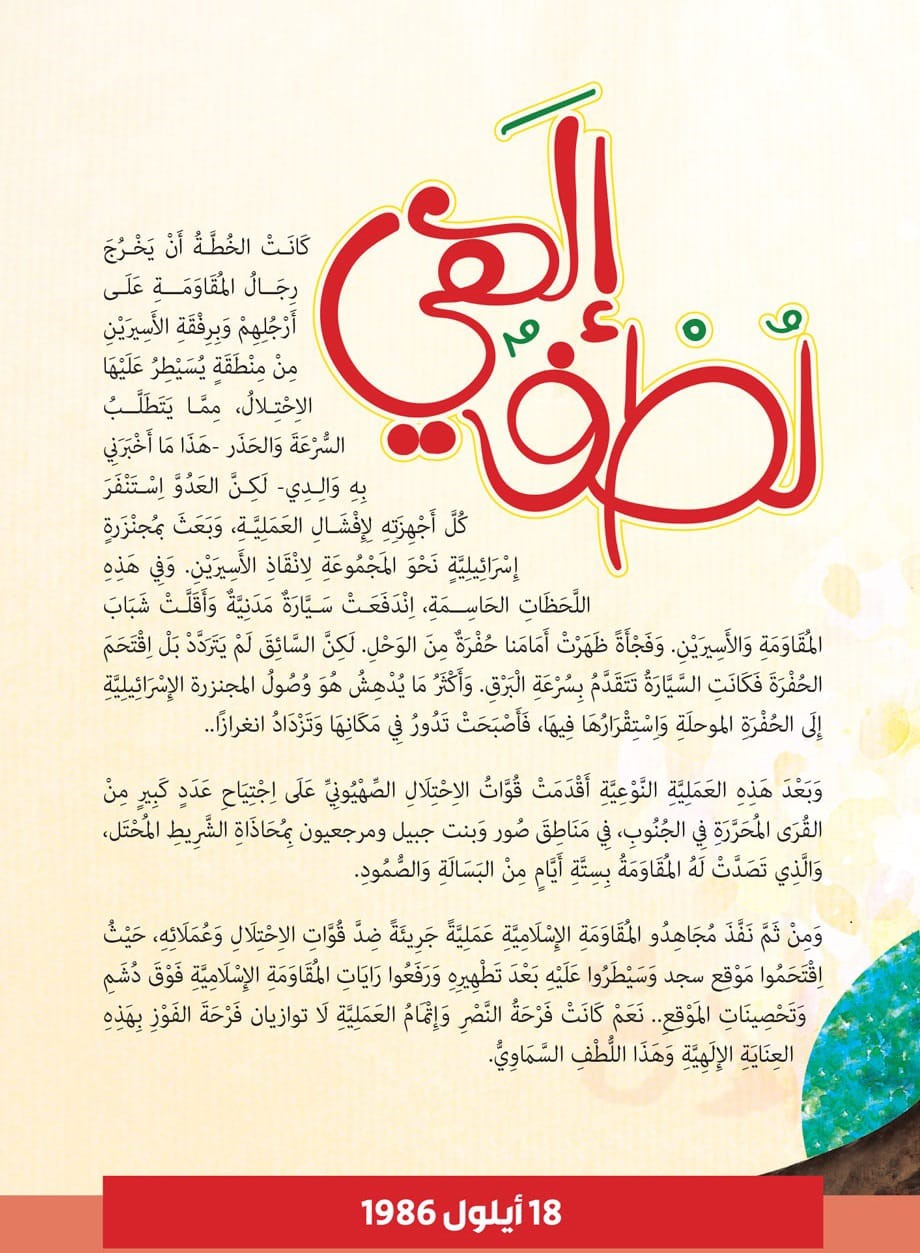 لُطْفٌ إِلَهِي
كَانَتْ الخُطَّةُ أَنْ يَخْرُجَ
رِجَالُ المُقَاوَمَةِ عَلَى
أَرْجُلِهِمْ وَبِرِفْقَةِ الأَسِيرَيْنِ
مِنْ مِنْطَقَةٍ يُسَيْطِرُ عَلَيْهَا
الاِحْتِلالُ، مِمَّا يَتَطَلَّبُ
السُّرْعَةَ وَالحَذَر -هَذَا مَا أَخْبَرَنِي
بِهِ وَالِدِي- لَكِنَّ العَدُوَّ اِسْتَنْفَرَ
كُلَّ أَجْهِزَتِهِ لِإِفْشَالِ العَمَلِيَّةِ، وَبَعَثَ بِمُجَنْزَرةٍ
إِسْرَائِيلِيَّةٍ نَحْوَ المَجْمُوعَةِ لِانْقَاذِ الأَسِيرَيْنِ. وَفِي هَذِهِ
اللَّحَظَاتِ الحَاسِمَةِ، اِنْدَفَعَتْ سَيَّارَةٌ مَدَنِيَّةٌ وَأَقَلَّتْ شَبَابَ
المُقَاوَمَةِ وَالأَسِيرَيْنِ. وَفَجْأَةً ظَهَرَتْ أَمَامَنا حُفْرَةٌ مِنَ الوَحْلِ. لَكِنَّ السَّائِقَ لَمْ يَتَرَدَّدْ بَلْ اِقْتَحَمَ
الحُفْرَةَ فَكَانَتِ السَّيَّارَةُ تَتَقَدَّمُ بِسُرْعَةِ الْبَرْقِ. وَأَكْثَرُ مَا يُدْهِشُ هُوَ وُصُولُ المجنزرة الإِسْرَائِيلِيَّةِ
إِلَى الحُفْرَةِ الموحلَةِ وَاسْتِقْرَارُهَا فِيهَا، فَأَصْبَحَتْ تَدُورُ فِي مَكَانِهَا وَتَزْدَادُ انغرازًا..
وَبَعْدَ هَذِهِ العَمَلِيَّةِ النَّوْعِيَّةِ أَقْدَمَتْ قُوَّاتُ الاِحْتِلَالِ الصِّهْيُونِيِّ عَلَى اِجْتِيَاحِ عَدَدٍ كَبِيرٍ مِنْ
القُرَى المُحَرَّرَةِ فِي الجُنُوبِ، فِي مَنَاطِقَ صُور وَبنت جبيل ومرجعيون بِمُحَاذَاةِ الشَّرِيطِ المُحْتَل،
وَالَّذِي تَصَدَّتْ لَهُ المُقَاوَمَةُ بِسِتَّةِ أَيَّامٍ مِنْ البَسَالَةِ وَالصُّمُودِ.
وَمِنْ ثَمَّ نَفَّذَ مُجَاهِدُو المُقَاوَمَةِ الإِسْلَامِيَّةِ عَمَلِيَّةً جَرِيئَةً ضِدَّ قُوَّاتِ الاِحْتِلَالِ وَعُمَلَائِهِ، حَيْثُ
اِقْتَحَمُوا مَوْقِع سجد وَسَيْطَرُوا عَلَيْهِ بَعْدَ تَطْهِيرِهِ وَرَفَعُوا رَايَاتِ المُقَاوَمَةِ الإِسْلَامِيَّةِ فَوْقَ دُشَمِ
وَتَحْصِينَاتِ المَوْقعِ.. نَعَمْ كَانَتْ فَرْحَةُ النَّصْرِ وَإِتْمَامُ العَمَلِيَّةِ لَا توازيان فَرْحَةَ الفَوْزِ بِهَذِهِ
العِنَايَةِ الإِلَهِيَّةِ وَهَذَا اللُّطْفِ السَّمَاوِيُّ.
18 أيلول 1986